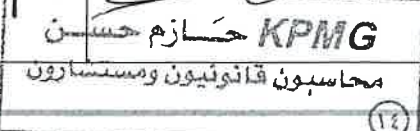 KPMG حازم حسن
محاسبون قانونيون ومستشارون
(١٤)